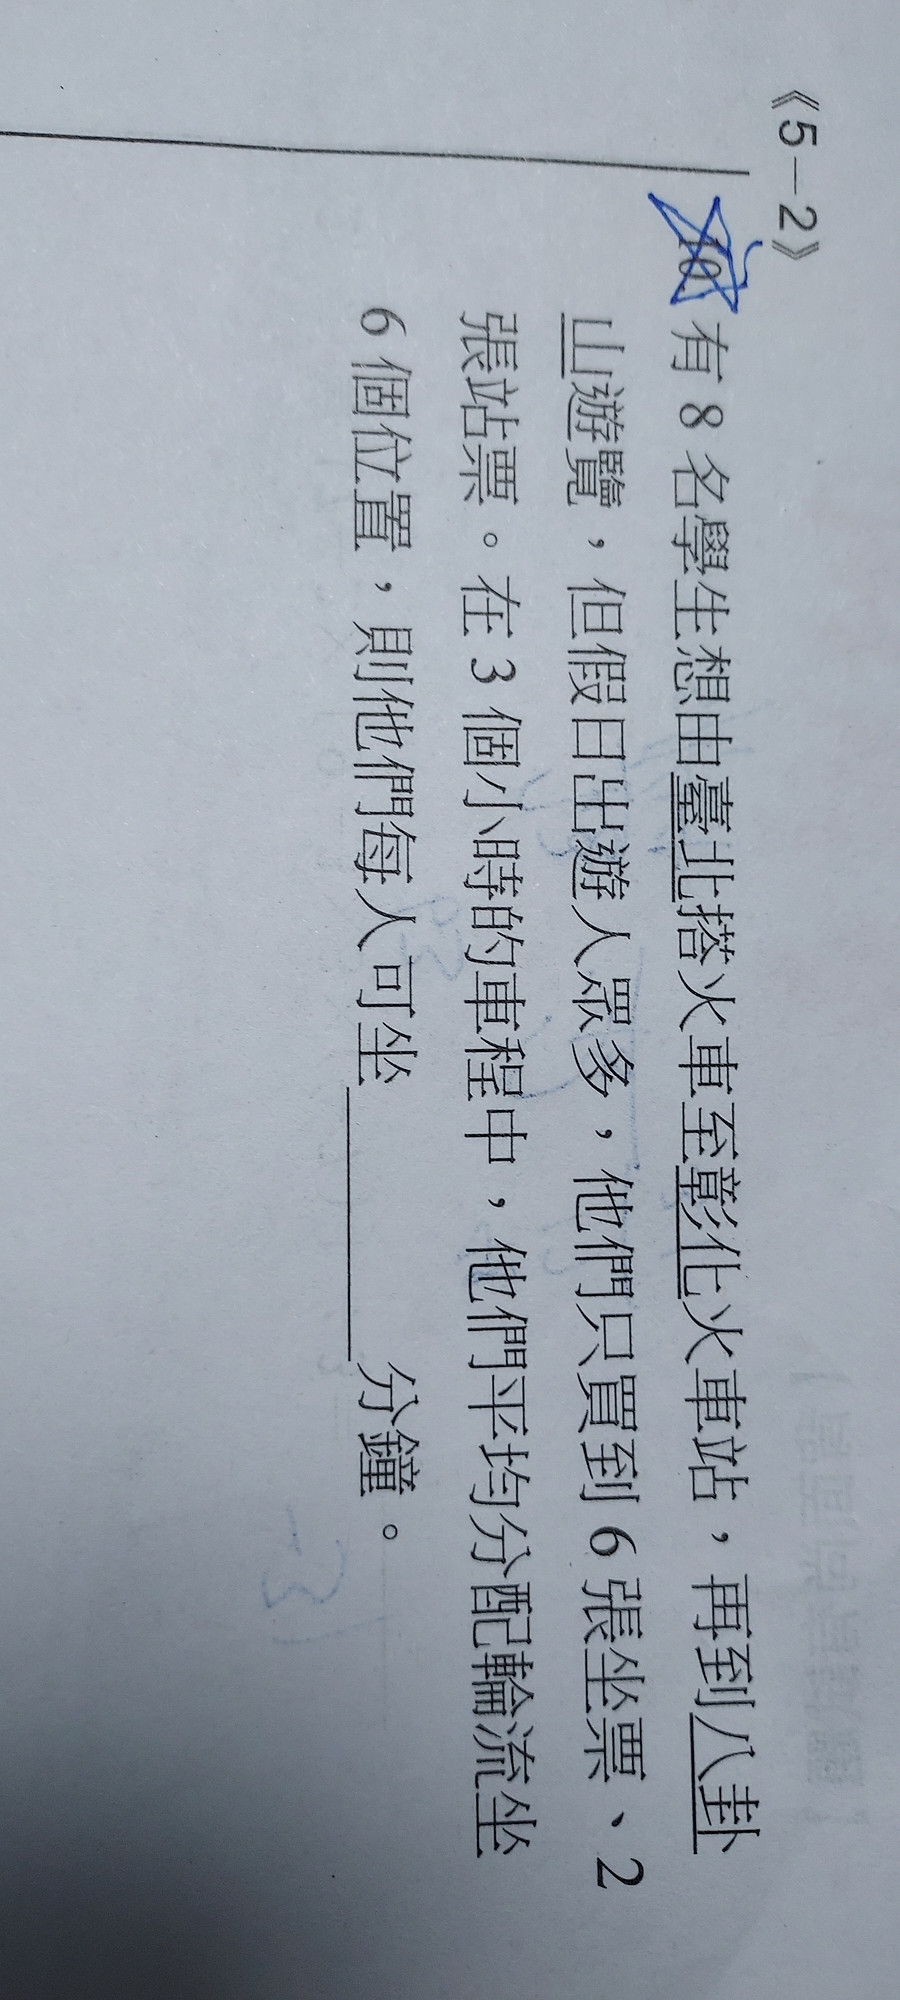 《5-2》
10. 有 8 名學生想由臺北搭火車至彰化火車站，再到八卦
山遊覽，但假日出遊人眾多，他們只買到 6 張坐票、2
張站票。在 3 個小時的車程中，他們平均分配輪流坐
6 個位置，則他們每人可坐________分鐘。